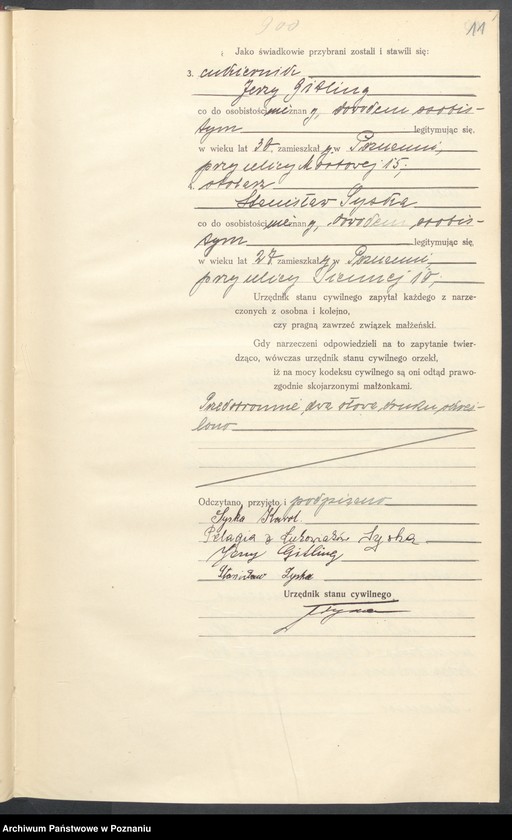 900
11
Jako świadkowie przybrani zostali i stawili się:
3. cukiernik
Jerzy Gitling
co do osobistości nieznany, dowodem osobis-
tym legitymując się,
w wieku lat 30, zamieszkały w Poznaniu,
przy ulicy 15;
4. stolarz
Stanisław Syska
co do osobistości nieznany, dowodem osobis-
tym legitymując się
w wieku lat 27, zamieszkały w Poznaniu,
przy ulicy Siennej 10,
Urzędnik stanu cywilnego zapytał każdego z narze-
czonych z osobna i kolejno,
czy pragną zawrzeć związek małżeński.
Gdy narzeczeni odpowiedzieli na to zapytanie twier-
dząco, wówczas urzędnik stanu cywilnego orzekł,
iż na mocy kodeksu cywilnego są oni odtąd prawo-
zgodnie skojarzonymi małżonkami.
Przedstronnie dwa słowa druku odkreś-
lono
Odczytano, przyjęto i podpisano
Syska Karol
Pelagia z Łukowiaków Syska
Jerzy Gitling
Stanisław Syska
Urzędnik stanu cywilnego
Archiwum Państwowe w Poznaniu